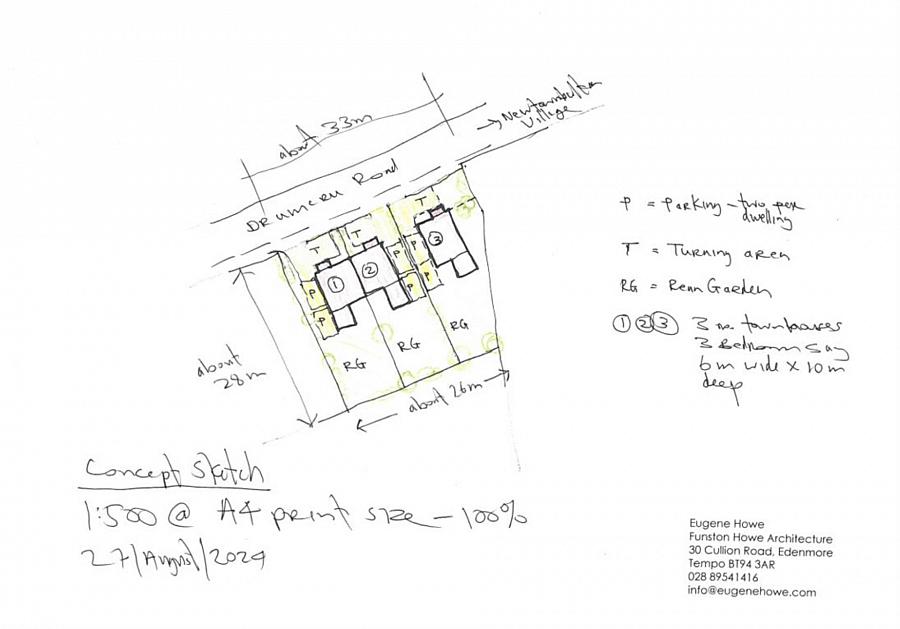 about 33m
→ Newtownbutler
Village
Drumcru Road
T
T
T
P
P
P
P
P
P
1
2
3
RG
RG
RG
about
28m
about 26m
P = Parking - two per
dwelling
T = Turning area
RG = Rear Garden
1 2 3 3 no. townhouses
3 Bedroom say
6m wide x 10m
deep
Concept Sketch
1:500 @ A4 print size - 100%
27/August/2024
Eugene Howe
Funston Howe Architecture
30 Cullion Road, Edenmore
Tempo BT94 3AR
028 89541416
info@eugenehowe.com